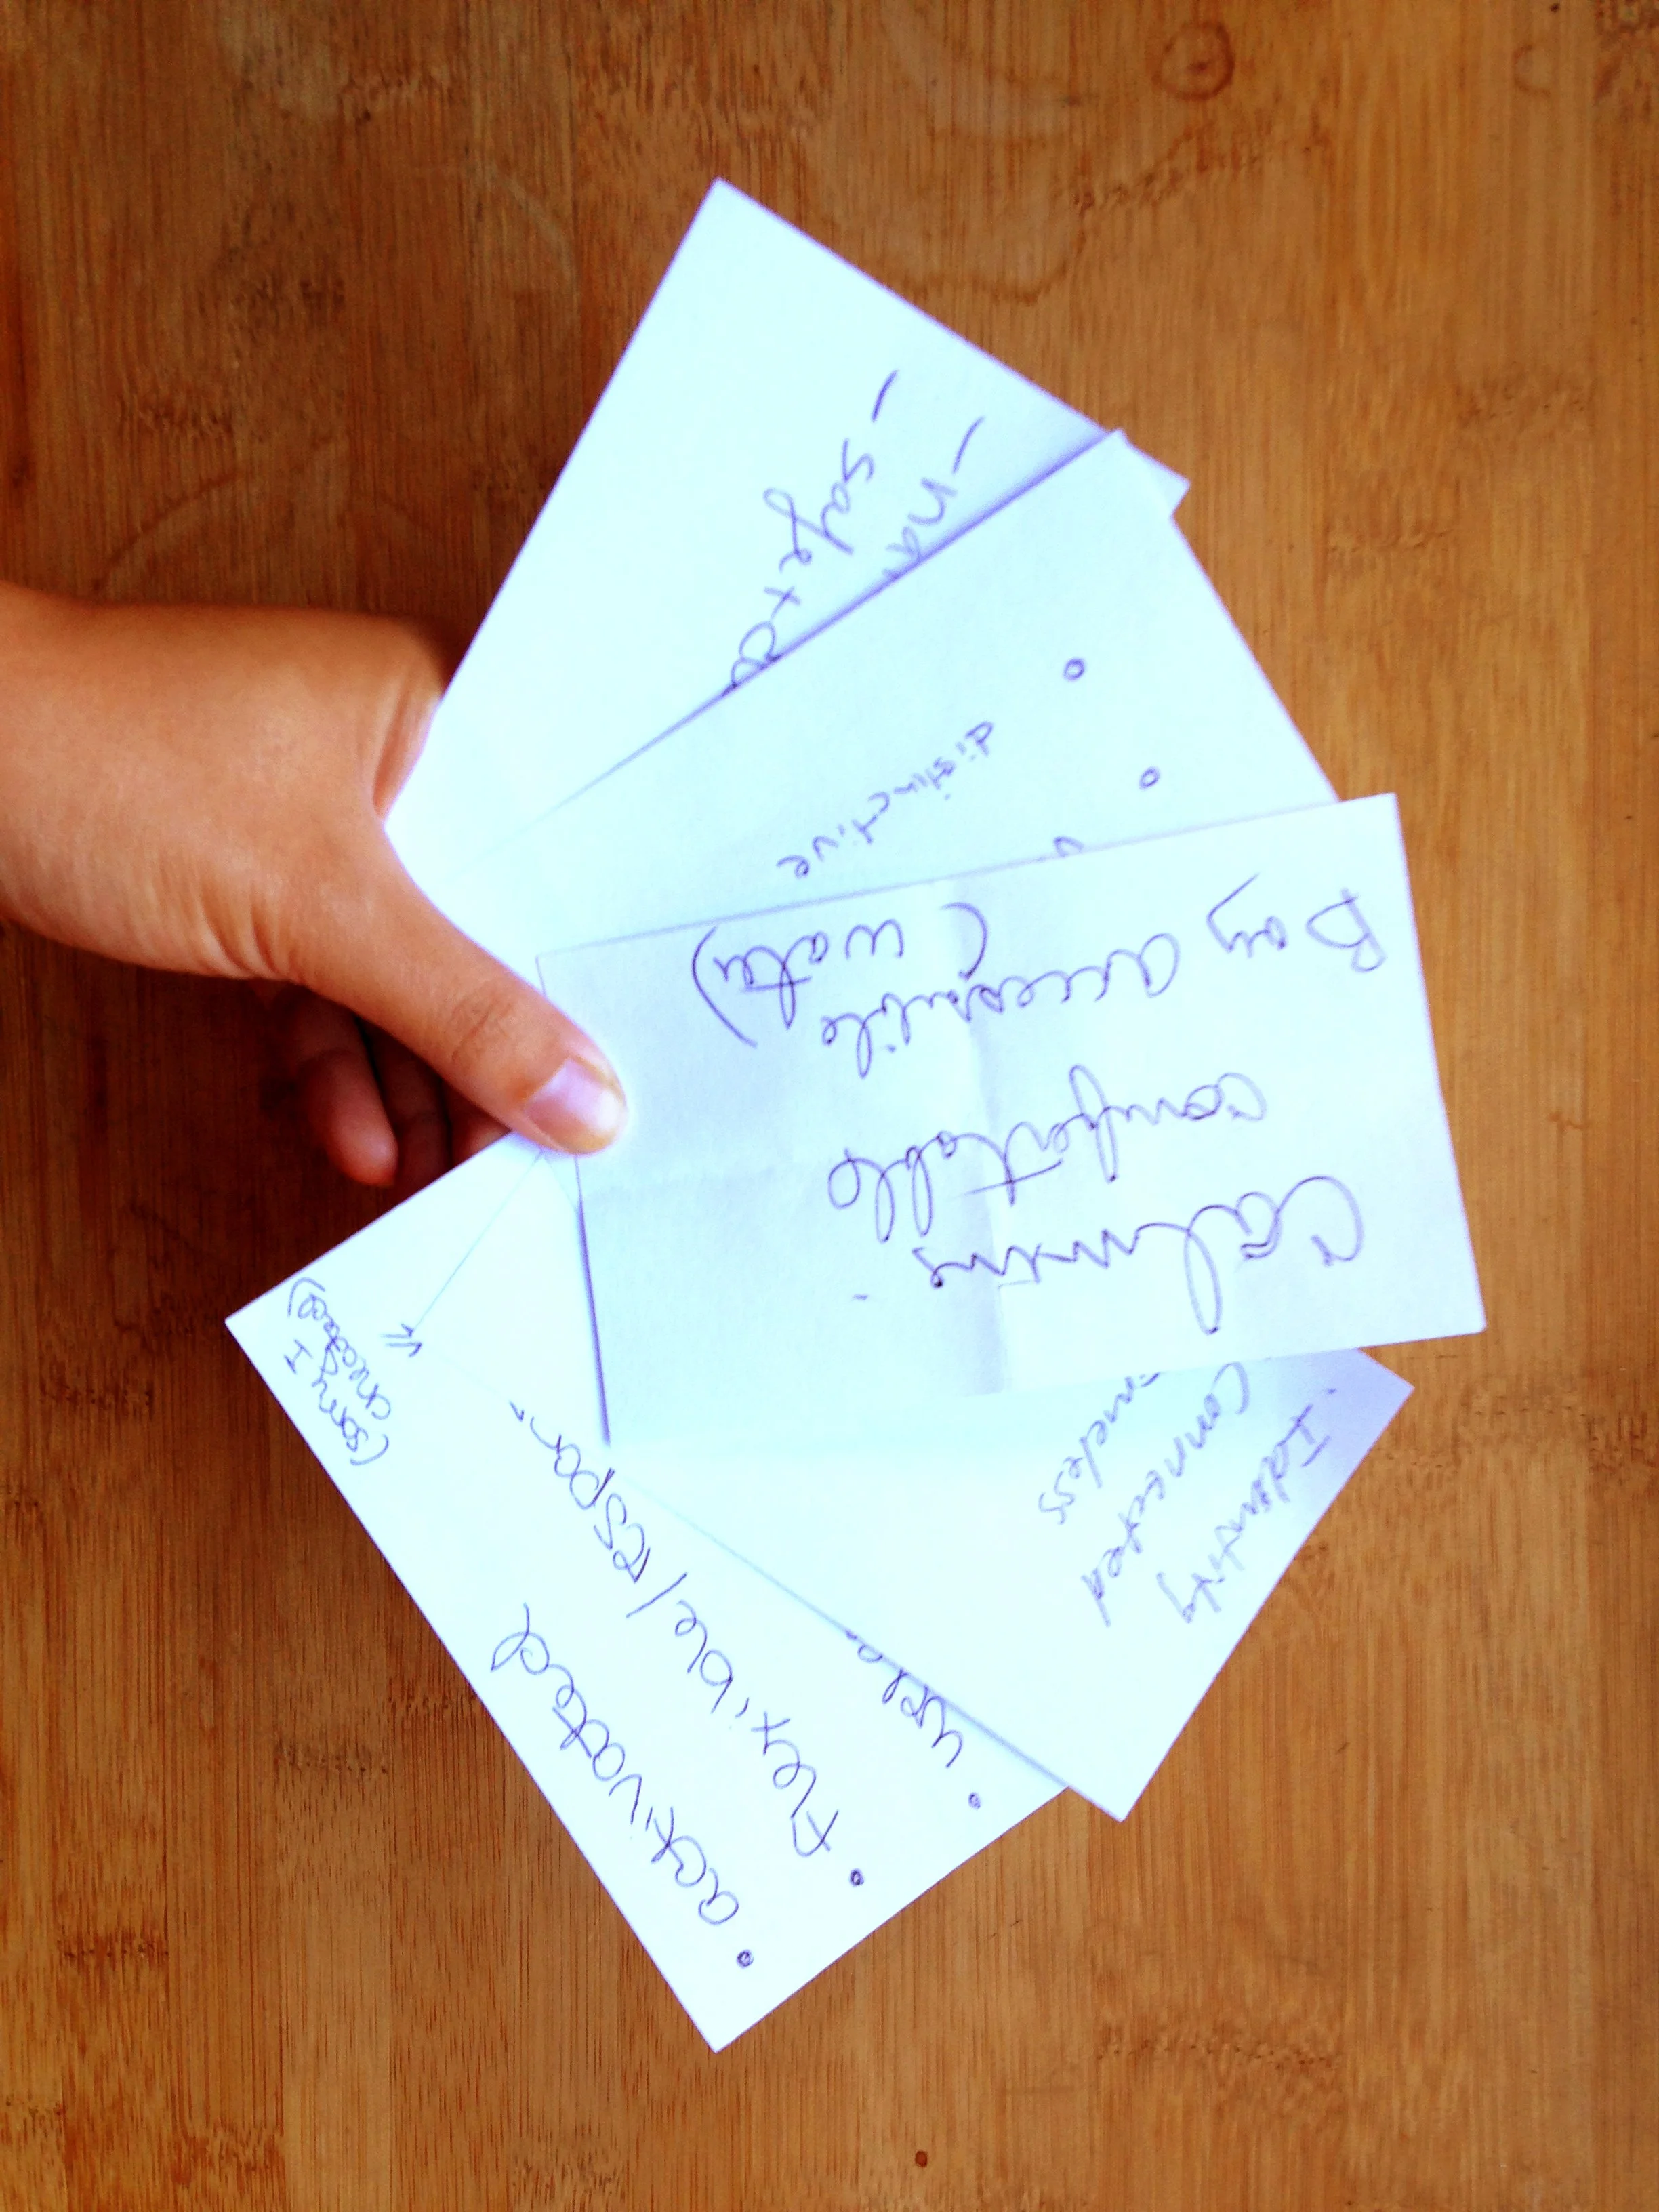 - safe + c
- na
distinctive
calming
comfortable
Bay accessible
(water)
Identity
Connected
activated
flexible/respon
(sorry I
cheated)